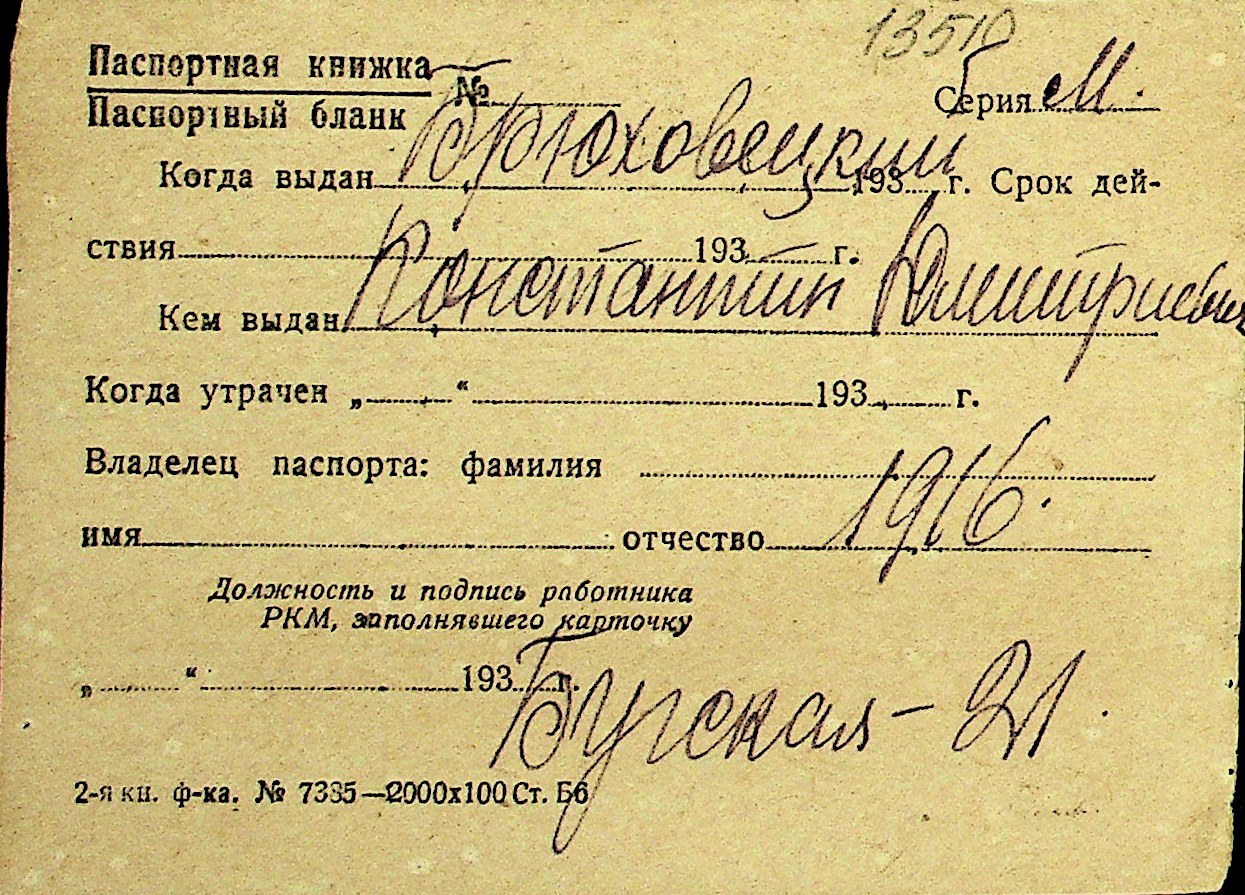 13510
Паспортная книжка
№
Паспортный бланк
Серия М.
Брюховецкий
Когда выдан 193 г. Срок дей-
ствия 193 г.
Константин Дмитриевич
Кем выдан
Когда утрачен „ “ 193 г.
Владелец паспорта: фамилия
1916.
имя отчество
Должность и подпись работника
РКМ, заполнявшего карточку
„ “ 193 г.
Бугская – 21.
2-я кн. ф-ка. № 7335—2000х100 Ст. Б6